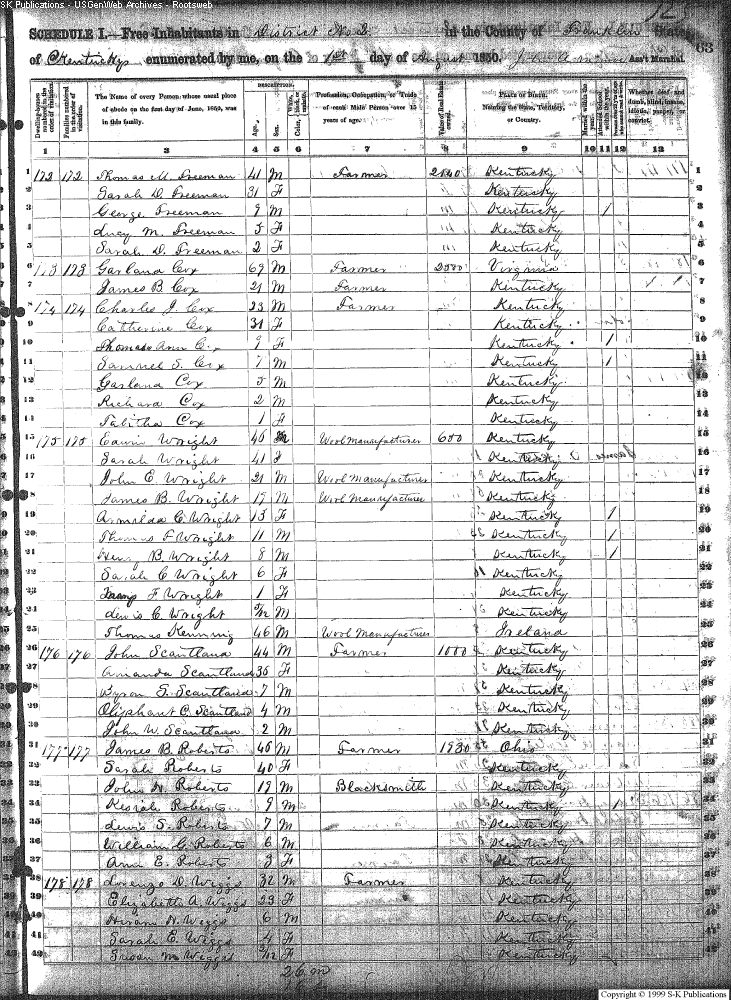 SK Publications - USGenWeb Archives - Rootsweb
SCHEDULE I.—Free Inhabitants in District No 2 in the County of Franklin State
63
of Kentucky enumerated by me, on the 1st day of August 1850. Ass't Marshal.
DESCRIPTION.
Dwelling-houses numbered in the order of visitation. Families numbered in the order of visitation. The Name of every Person whose usual place of abode on the first day of June, 1850, was in this family. Age. Sex. Color, White, black, or mulatto. Profession, Occupation, or Trade of each Male Person over 15 years of age. Value of Real Estate owned. Place of Birth. Naming the State, Territory, or Country. Married within the year. Attended School within the year. Whether deaf and dumb, blind, insane, idiotic, pauper, or convict.
1 2 3 4 5 6 7 8 9 10 11 12 13
1 172 172 Thomas M. Freeman 41 M Farmer Kentucky 1
2 Sarah D. Freeman 31 F Kentucky 2
3 George Freeman 9 M Kentucky / 3
4 Lucy M. Freeman 5 F Kentucky 4
5 Sarah D. Freeman 2 F Kentucky 5
6 173 173 Garland Cox 69 M Farmer Virginia 6
7 James B Cox 21 M Farmer Kentucky 7
8 174 174 Charles J. Cox 23 M Farmer Kentucky 8
9 Catherine Cox 31 F Kentucky 9
10 Thomas Ann C. 9 F Kentucky / 10
11 Samuel S. Cox 7 M Kentucky / 11
12 Garland Cox 5 M Kentucky 12
13 Richard Cox 2 M Kentucky 13
14 Tabitha Cox 1 F Kentucky 14
15 175 175 Edwin Wright 45 M Wool Manufacturer 600 Kentucky 15
16 Sarah Wright 41 F Kentucky 16
17 John E. Wright 21 M Wool Manufacturer Kentucky 17
18 James B. Wright 19 M Wool Manufacturer Kentucky 18
19 Armilda C. Wright 13 F Kentucky / 19
20 Thomas F Wright 11 M Kentucky / 20
21 Henry B. Wright 8 M Kentucky / 21
22 Sarah C Wright 6 F Kentucky 22
23 F Wright 1 F Kentucky 23
24 Lewis C. Wright M Kentucky 24
25 Thomas 46 M Wool Manufacturer Ireland 25
26 176 176 John Scantland 44 M Farmer 1000 Kentucky 26
27 Amanda Scantland 35 F Kentucky 27
28 Byron S. Scantland 7 M Kentucky 28
29 Oliphant C. Scantland 4 M Kentucky 29
30 John W. Scantland 2 M Kentucky 30
31 177 177 James B. Roberts 45 M Farmer Ohio 31
32 Sarah Roberts 40 F Kentucky 32
33 John N. Roberts 19 M Blacksmith Kentucky 33
34 Roberts 9 M Kentucky / 34
35 Lewis S. Roberts 7 M Kentucky 35
36 William G. Roberts 6 M Kentucky 36
37 Ann E. Roberts 3 F Kentucky 37
38 178 178 Lorenzo D. Wiggs 32 M Farmer Kentucky 38
39 Elizabeth A. Wiggs 23 F Kentucky 39
40 Hiram N. Wiggs 6 M Kentucky 40
41 Sarah E. Wiggs 4 F Kentucky 41
42 Susan M Wiggs F Kentucky 42
26 m
Copyright © 1999 S-K Publications